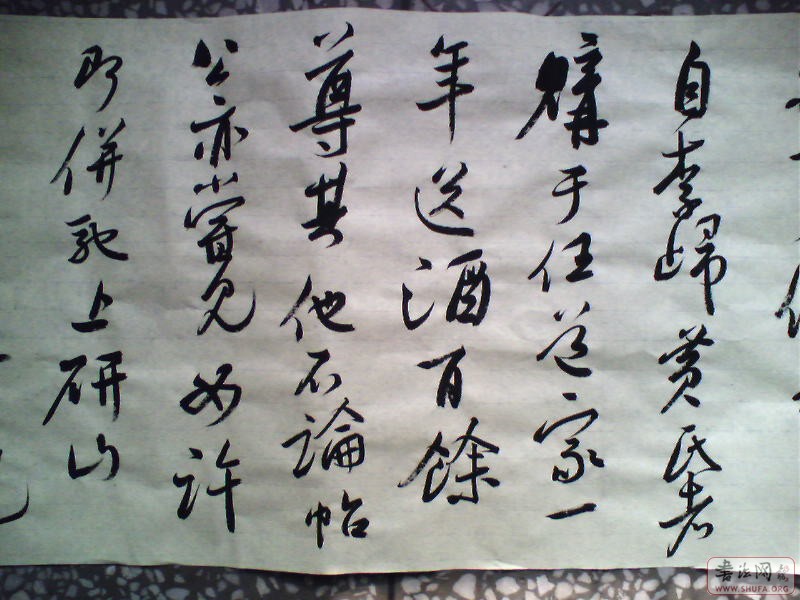 自李歸黄氏者
購于任道家一
年送酒百餘
尊其他不論帖
公亦嘗見如許
即併馳上研山
書法网
WWW.SHUFA.ORG